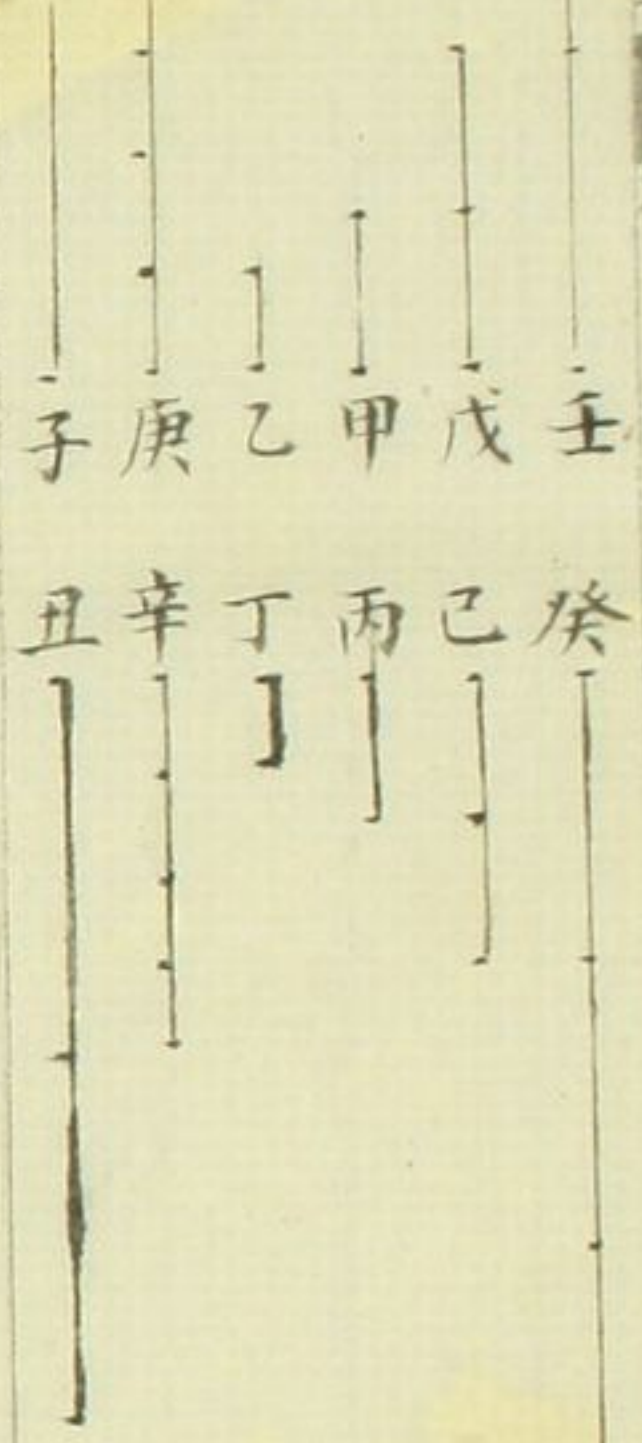 壬戊甲乙庚子
癸己丙丁辛丑